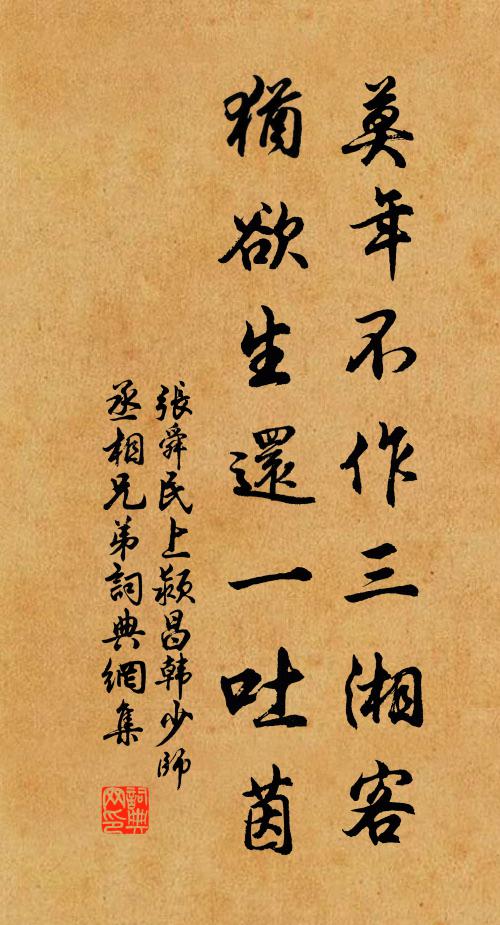 莫年不作三湘客
猶欲生還一吐茵
張舜民上潁昌韩少师
丞相兄弟詞典網集
詞典網印